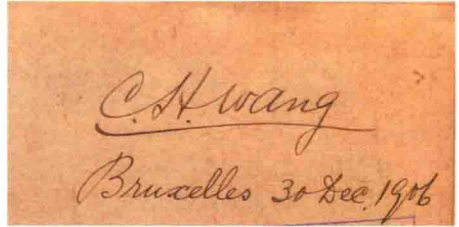 C. H. Wang
Bruxelles 30 Dec. 1906